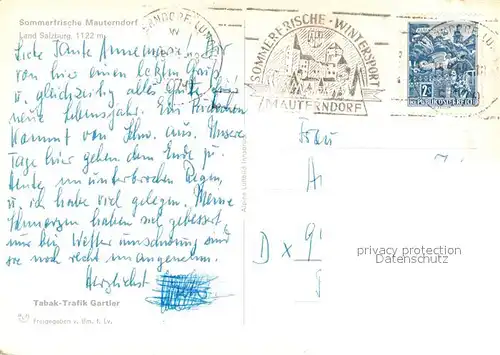 Sommerfrische Mauterndorf
Land Salzburg, 1122 m
Liebe Tante Annemarie! Dir
von hier einen letzten Gruß
u. gleichzeitig alles Gute
neue Lebensjahr. Ein Päckchen
kommt von aus. Unsere
Tage hier gehen dem Ende zu.
Heute ununterbrochen Regen,
u. ich habe viel gelegen. Meine
Schmerzen haben sich gebessert,
nur bei Wetterumschwung sind
sie noch recht unangenehm.
Herzlichst
Tabak-Trafik Gartler
Freigegeben v. Bm. f. Lv.
SOMMERFRISCHE · WINTERSPORT
MAUTERNDORF
REPUBLIK ÖSTERREICH
Frau
A
D x 9
privacy protection
Datenschutz